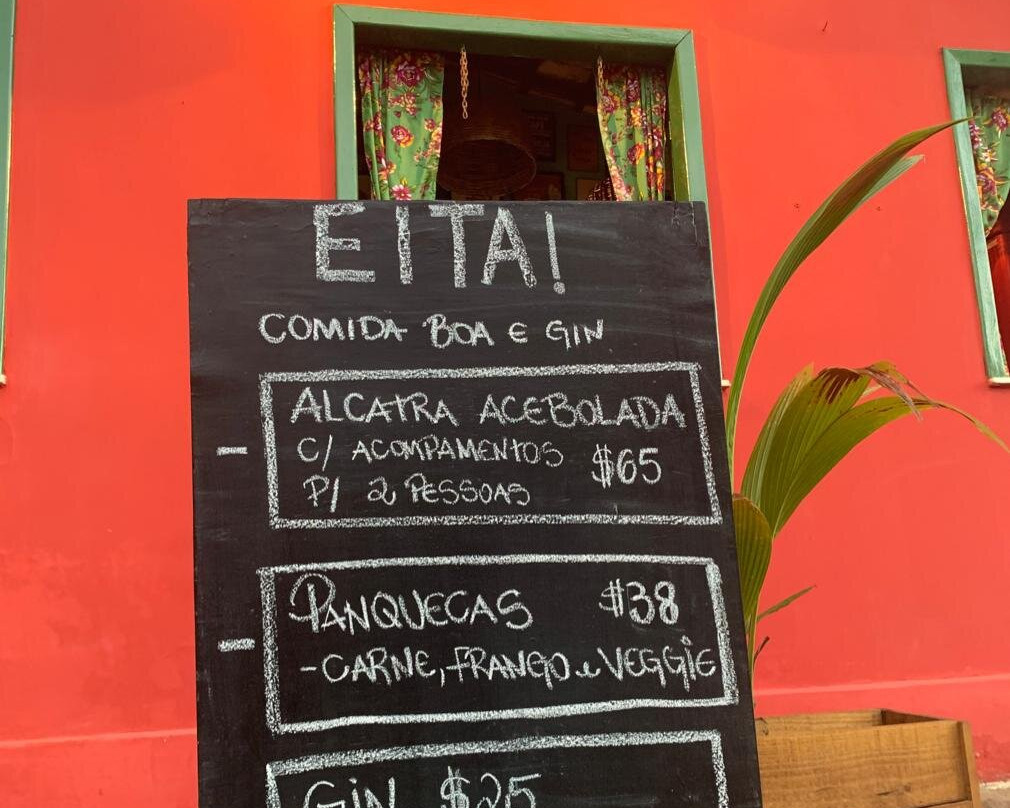 EITA!
COMIDA BOA E GIN
ALCATRA ACEBOLADA
C/ ACOMPAMENTOS $65
P/ 2 PESSOAS
PANQUECAS $38
-CARNE, FRANGO e VEGGIE
GIN $25